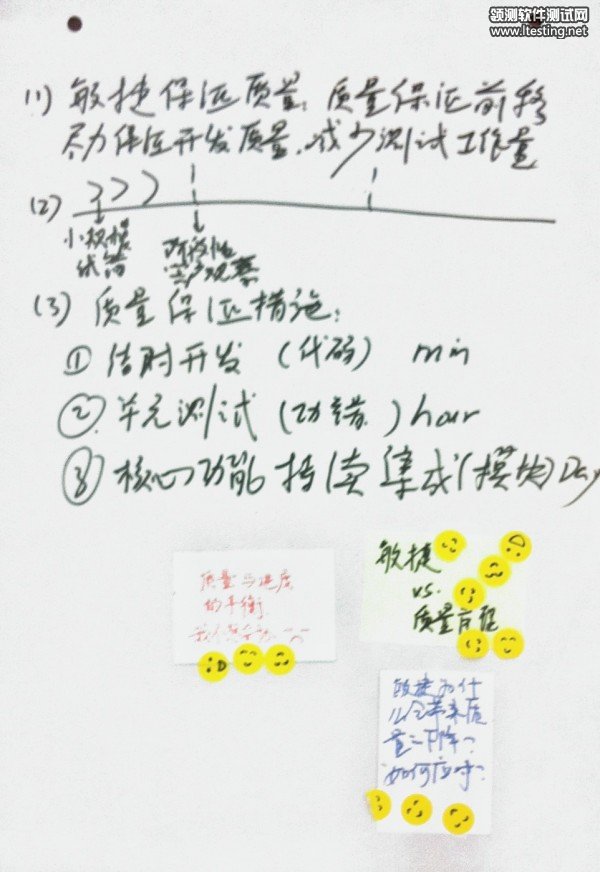 领测软件测试网
www.ltesting.net
(1) 敏捷保证质量,质量保证前移
尽力保证开发质量,减少测试工作量
(2)
小规模
试错
阶段性
客户观察
(3) 质量保证措施:
① 结对开发 (代码) min
② 单元测试 (功错) hour
③ 核心功能持续集成 (模块) Day
质量与进度
的平衡
敏捷
vs.
质量
敏捷为什
么会带来质
量下降?
如何应对?